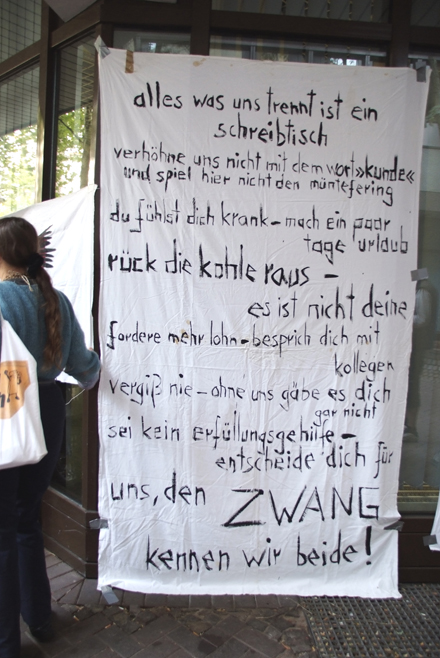 alles was uns trennt ist ein
schreibtisch
verhöhne uns nicht mit dem wort »kunde«
und spiel hier nicht den müntefering
du fühlst dich krank – mach ein paar
tage urlaub
rück die kohle raus –
es ist nicht deine
fordere mehr lohn – besprich dich mit
kollegen
vergiß nie – ohne uns gäbe es dich
gar nicht
sei kein erfüllungsgehilfe –
entscheide dich für
uns, den ZWANG
kennen wir beide!